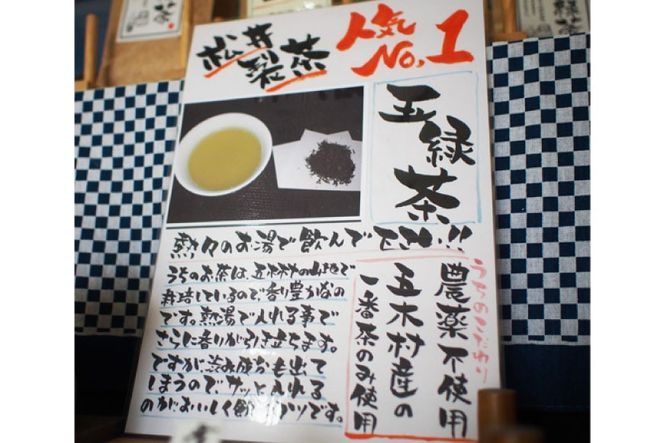 茶
緑茶
松井
製茶
人気
No.1
玉緑茶
熱々のお湯で飲んで下さい!!
うちのお茶は、五木村の山地で
栽培しているので香り豊かなの
です。熱湯で入れる事で
さらに香りが引き立ちます。
ですが、渋み成分も出て
しまうので、サッと入れる
のがおいしく飲むコツです。
うちのこだわり
農薬不使用
五木村産の
一番茶のみ使用